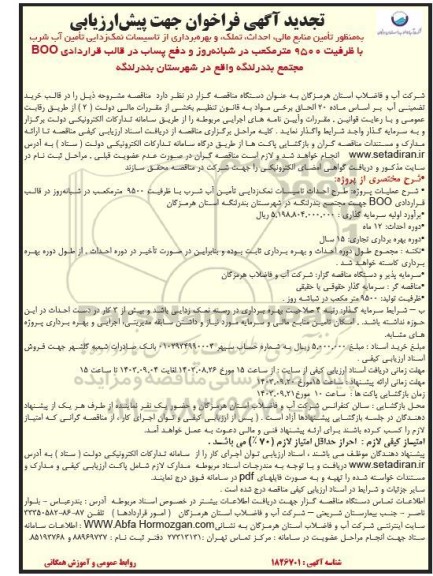 تجدید آگهی فراخوان جهت پیش‌ارزیابی
به‌منظور تأمین منابع مالی، احداث، تملک، و بهره‌برداری از تاسیسات نمک‌زدایی تأمین آب شرب
با ظرفیت ۹۵۰۰ مترمکعب در شبانه‌روز و دفع پساب در قالب قراردادی BOO
مجتمع بندرلنگه واقع در شهرستان بندرلنگه
شرکت آب و فاضلاب استان هرمزگان به عنوان دستگاه مناقصه گزار در نظر دارد مناقصه مشروحه ذیل را در قالب خرید
تضمینی آب بر اساس ماده ۲۰ الحاق برخی مواد به قانون تنظیم بخشی از مقررات مالی دولت (۲) از طریق رقابت
عمومی و با رعایت قوانین، مقررات وآیین نامه های اجرایی مربوطه را از طریق سامانه تدارکات الکترونیکی دولت برگزار
و به سرمایه گذار واجد شرایط واگذار نماید. کلیه مراحل برگزاری مناقصه از دریافت اسناد ارزیابی کیفی مناقصه تا ارائه
مدارک و مستندات مناقصه گران و بازگشایی پاکت ها از طریق درگاه سامانه تدارکات الکترونیکی دولت (ستاد) به آدرس
www.setadiran.ir انجام خواهد شد و لازم است مناقصه گران در صورت عدم عضویت قبلی، مراحل ثبت نام در
سایت مذکور و دریافت گواهی امضای الکترونیکی را جهت شرکت در مناقصه محقق سازند
*شرح مختصری از پروژه:
* شرح عملیات پروژه: طرح احداث تاسیسات نمک‌زدایی تأمین آب شرب با ظرفیت ۹۵۰۰ مترمکعب در شبانه‌روز در قالب
قراردادی BOO جهت مجتمع بندرلنگه در شهرستان بندرلنگه استان هرمزگان
*برآورد اولیه سرمایه گذاری: ۵,۱۹۸,۸۰۴,۰۰۰,۰۰۰ ریال
*دوره احداث: ۱۲ ماه
*دوره بهره برداری تجاری: ۱۵ سال
*نکته: مجموع طول دوره احداث و بهره برداری ثابت بوده و بنابراین در صورت تأخیر در دوره احداث، از طول دوره بهره
برداری کاسته خواهد شد.
*سرمایه پذیر و دستگاه مناقصه گزار: شرکت آب و فاضلاب هرمزگان
*مناقصه گر: سرمایه گذار حقوقی یا حقیقی
*ظرفیت تولید: ۹۵۰۰متر مکعب در شبانه روز.
ب – شرایط سرمایه گذار: رتبه ۲ صلاحیت بهره برداری در رسته نمک زدایی باشد و بیش از ۲ کار در دست احداث در این
حوزه نداشته باشد، امکان تأمین منابع مالی و سرمایه مورد نیاز و داشتن سابقه مدیریتی، اجرایی و بهره برداری پروژه
های مشابه.
مبلغ خرید اسناد: مبلغ ۵,۰۰۰,۰۰۰ ریال به شماره حساب سپهر بانک صادرات شعبه گلشهر جهت فروش
اسناد ارزیابی کیفی.
مهلت زمانی دریافت اسناد ارزیابی کیفی از سایت: از ساعت ۱۵ مورخ ۱۴۰۳,۰۸,۲۶ لغایت ۱۴۰۳,۰۹,۰۴ تا ساعت ۱۵
مهلت زمانی ارائه پیشنهاد تا ساعت ۱۵مورخ ۱۴۰۳,۰۹,۲۰
زمان بازگشایی پاکت ها: ساعت ۱۰ مورخ ۱۴۰۳,۰۹,۲۱
محل بازگشایی: سالن کنفرانس شرکت آب و فاضلاب استان هرمزگان و حضور یک نفر نماینده از طرف هر یک از پیشنهاد
دهندگان در جلسه بازگشایی پیشنهادها آزاد است. (پس از ارزیابی کیفی و توان اجرای کار، از مناقصه گرانی که امتیاز
لازم را کسب کرده باشند برای ارائه پیشنهاد فنی و مالی دعوت به عمل خواهد آمد.
امتیاز کیفی لازم: احراز حداقل امتیاز لازم (۷۰٪) می باشد.
پیشنهاد دهندگان موظف می باشند، اسناد ارزیابی توان اجرای کار را از سامانه تدارکات الکترونیکی دولت (ستاد) به آدرس
www.setadiran.ir دریافت و با توجه به مندرجات اسناد مربوطه مدارک لازم شامل پاکت ارزیابی کیفی و مدارک و
مستندات خواسته شده را تهیه و به صورت فایلهای pdf در سامانه فوق درج نمایند.
سایر جزئیات و شرایط در اسناد ارزیابی کیفی مناقصه درج شده است.
اطلاعات تماس دستگاه مناقصه گزار جهت دریافت اطلاعات بیشتر در خصوص اسناد مربوطه آدرس: بندرعباس – بلوار
ناصر – جنب بیمارستان شریعتی – شرکت آب و فاضلاب استان هرمزگان (امور قراردادها) تلفن ۸۷-۸۶-۳۳۳۵۰۵۸۲
سایت اینترنتی شرکت آب و فاضلاب استان هرمزگان به نشانی WWW.Abfa Hormozgan.com: اطلاعات سامانه
ستاد جهت انجام مراحل عضویت در سامانه: مرکز تماس تهران: ۲۷۳۱۳۱۳۱ دفتر ثبت نام: ۸۸۹۶۹۷۳۷ و ۸۵۱۹۳۷۶۸.
شناسه آگهی: ۱۸۲۶۷۰۱
روابط عمومی و آموزش همگانی